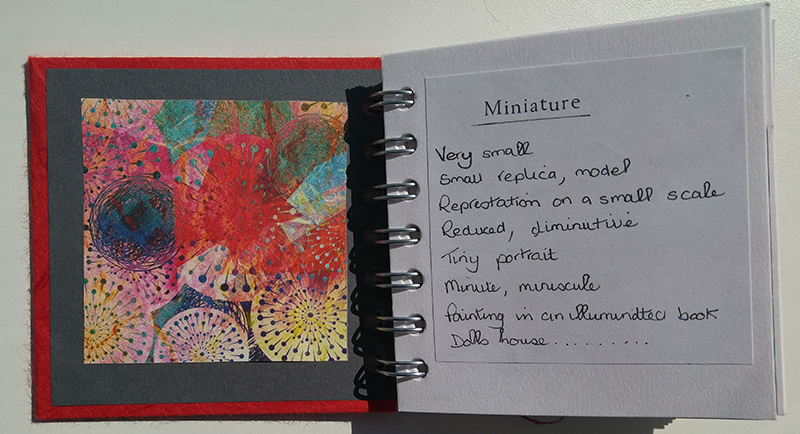 Miniature
Very small
Small replica, model
Represtation on a small scale
Reduced, diminutive
Tiny portrait
Minute, minuscule
Painting in an illumindted book
Dolls house..........